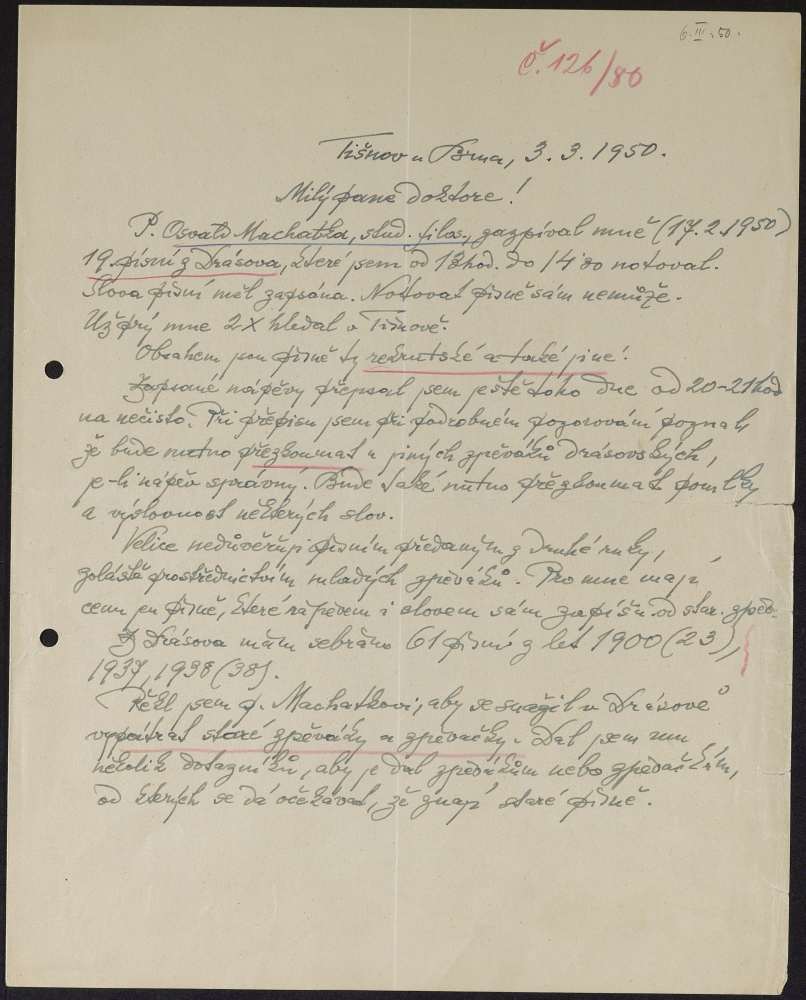 6. III. 50.
Č. 126/80
Tišnov u Brna, 3. 3. 1950.
Milý pane doktore!
P. Osvald Machatka, stud. filos., zazpíval mně (17. 2. 1950)
19. písní z Drásova, které jsem od 13 hod. do 14 notoval.
Slova písní měl zapsána. Notovat písně sám nemůže.
Už prý mne 2x hledal v Tišnově.
Obsahem jsou písně ty rekrutské a také jiné.
Zapsané nápěvy přepsal jsem ještě toho dne od 20-21 hod
na nečisto. Při přepisu jsem při podrobném pozorování poznal,
že bude nutno přezkoumat u jiných zpěváků drásovských,
je-li nápěv správný. Bude také nutno přezkoumat pomlky
a výslovnost některých slov.
Velice nedůvěřuji písním předaným z druhé ruky,
zvláště prostřednictvím mladých zpěváků. Pro mne mají
cenu jen písně, které nápěvem i slovem sám zapíšu od star. zpěv.
Z Drásova mám sebráno 61 písní z let 1900 (23),
1937, 1938 (38).
Řekl jsem p. Machatkovi, aby se snažil v Drásově
vypátrat staré zpěváky a zpěvačky. Dal jsem mu
několik dotazníků, aby je dal zpěvákům nebo zpěvačkám,
od kterých se dá očekávat, že znají staré písně.